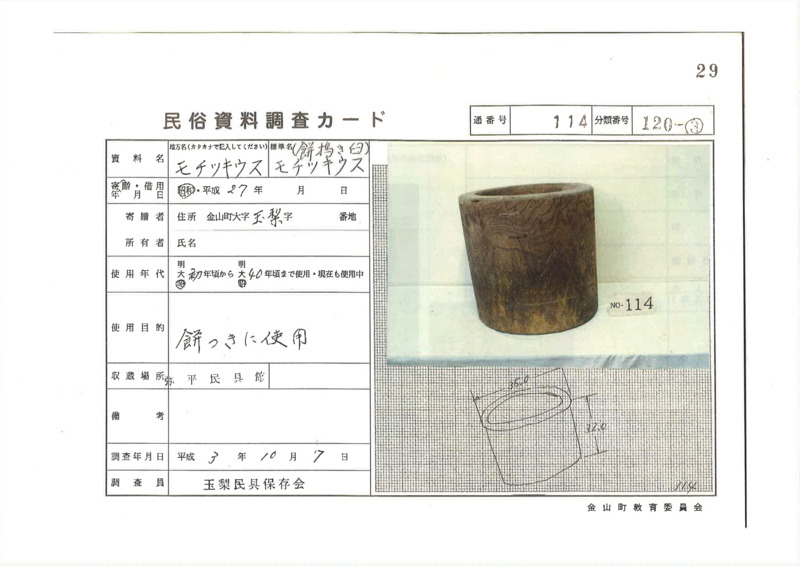 29
民俗資料調査カード
通番号 114 分類番号 120-③
資料名 地方名(カタカナで記入してください) モチツキウス 標準名 (餅搗き臼) モチツキウス
寄贈・借用年月日 昭和・平成 27年 月 日
寄贈者 住所 金山町大字玉梨字 番地
所有者 氏名
使用年代 明 大 昭 初年頃から 明 大 昭 40年頃まで使用・現在も使用中
使用目的 餅つきに使用
収蔵場所 弥平民具館
備考
調査年月日 平成3年10月7日
調査員 玉梨民具保存会
NO-114
35.0
32.0
114
金山町教育委員会